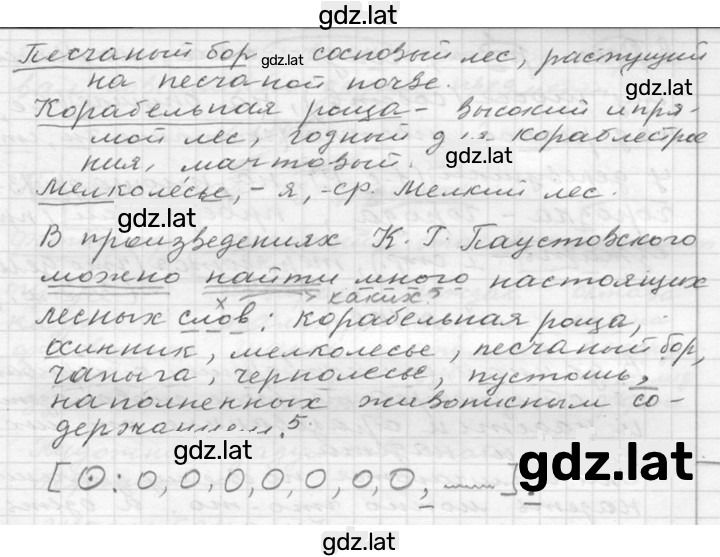 gdz.lat
Песчаный бор gdz.lat сосновый лес, растущий
на песчаной почве.
gdz.lat
Корабельная роща - высокий и пря-
мой лес, годный для кораблестрое
ния, мачтовый.
gdz.lat
Мелколесье, - я, -ср. Мелкий лес.
gdz.lat
В произведениях К. Г. Паустовского
можно найти много настоящих
х каких?
лесных слов: корабельная роща,
осинник, мелколесье, песчаный бор,
чапыга, чернолесье, пустошь,
наполненных живописным со-
держанием.5
gdz.lat
[⊙: О, О, О, О, О, О, О, ......].
gdz.lat
gdz.lat